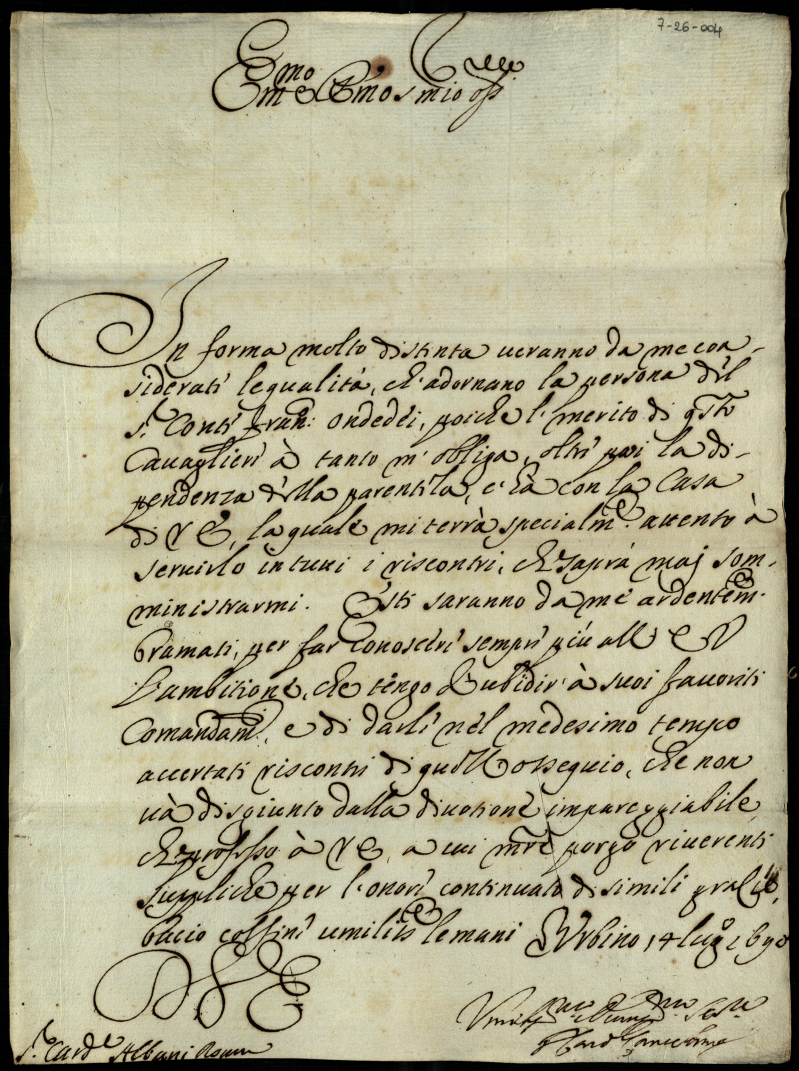 7-26-004
Emo e Rmo S mio Oss
In forma molto distinta ueranno da me con-
siderati le qualità, ch'adornano la persona del
S. Conte Fran: Ondedei, poiche l'merito di qsto
Caualiere à tanto m'obliga, oltre poi la di-
pendenza della parentela, c'hà con la Casa
di VE, la quale mi terrà specialmte. attento à
seruirlo in tutti i riscontri, che saprà maj som-
ministrarmi. Esti saranno da me ardentemte
bramati, per far conoscere sempre più all' EV
l'ambitione, che tengo d'ubidir à suoi fauoriti
Comandami, e di darle nel medesimo tempo
accertati riscontri di quell' ossequio, che non
uà disgiunto dalla diuotione impareggiabile,
che professo à VE, a cui mre porgo riuerenti
suppliche per l'onore continuato di simili gratie,
bacio col fine umilisste le mani Vrbino, 14 lugo 169
DVE
S. Card.e Albani Roma